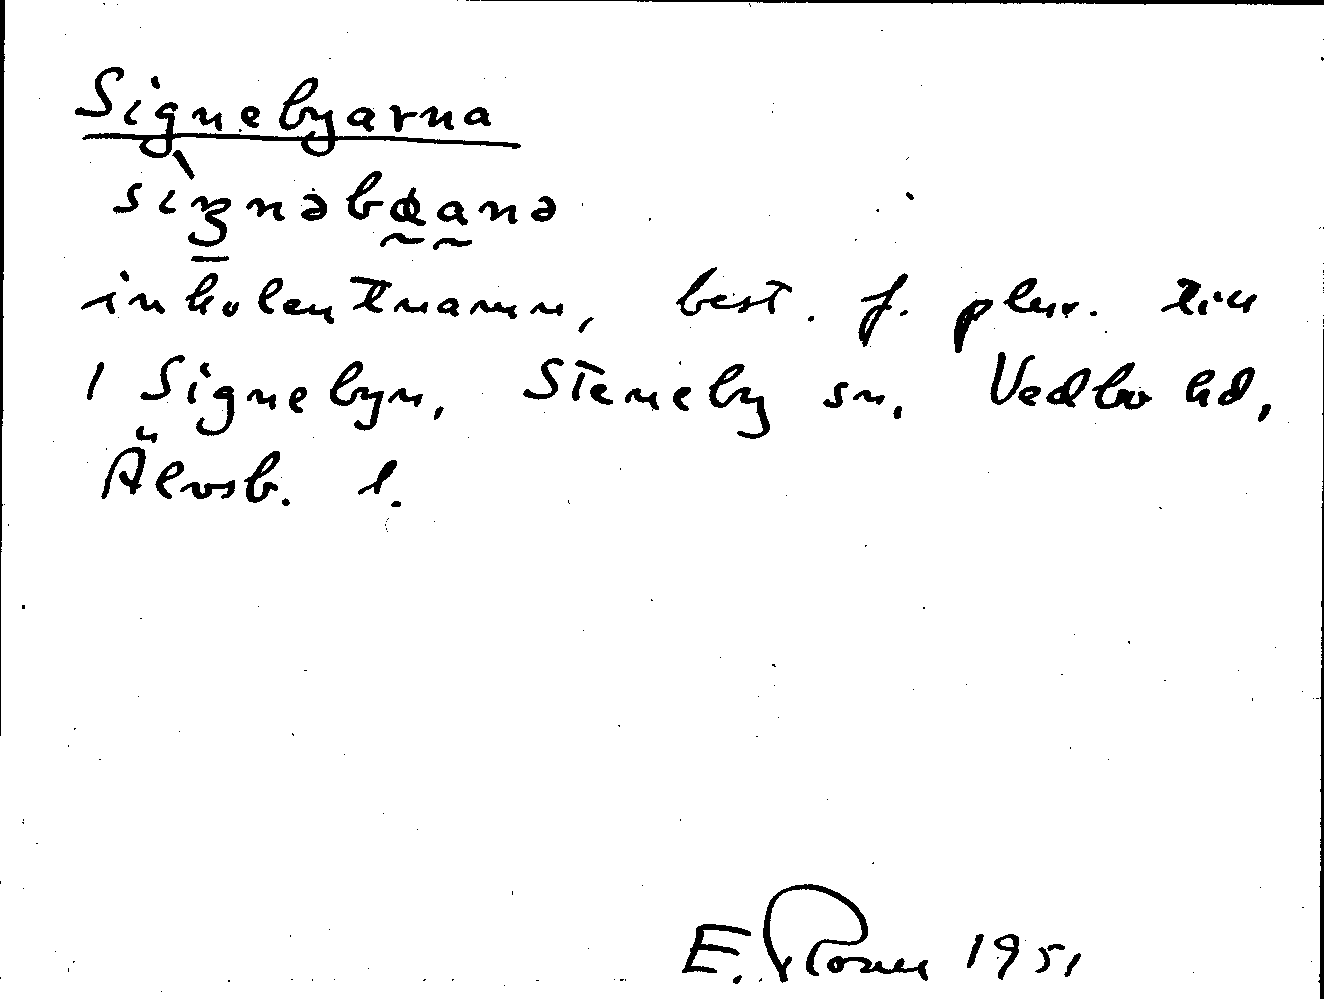 Signebyarna
inkolentnamn, best. f. plur. till
1 Signebyn, Steneby sn, Vedbo hd,
Älvsb. l.
E. 1951